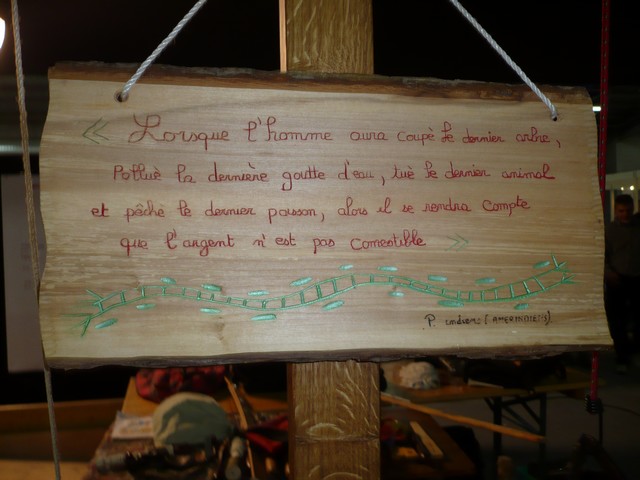 « Lorsque l'homme aura coupé le dernier arbre,
Pollué la dernière goutte d'eau, tué le dernier animal
et pêché le dernier poisson, alors il se rendra compte
que l'argent n'est pas comestible »
P. indien: (AMERINDIENS)